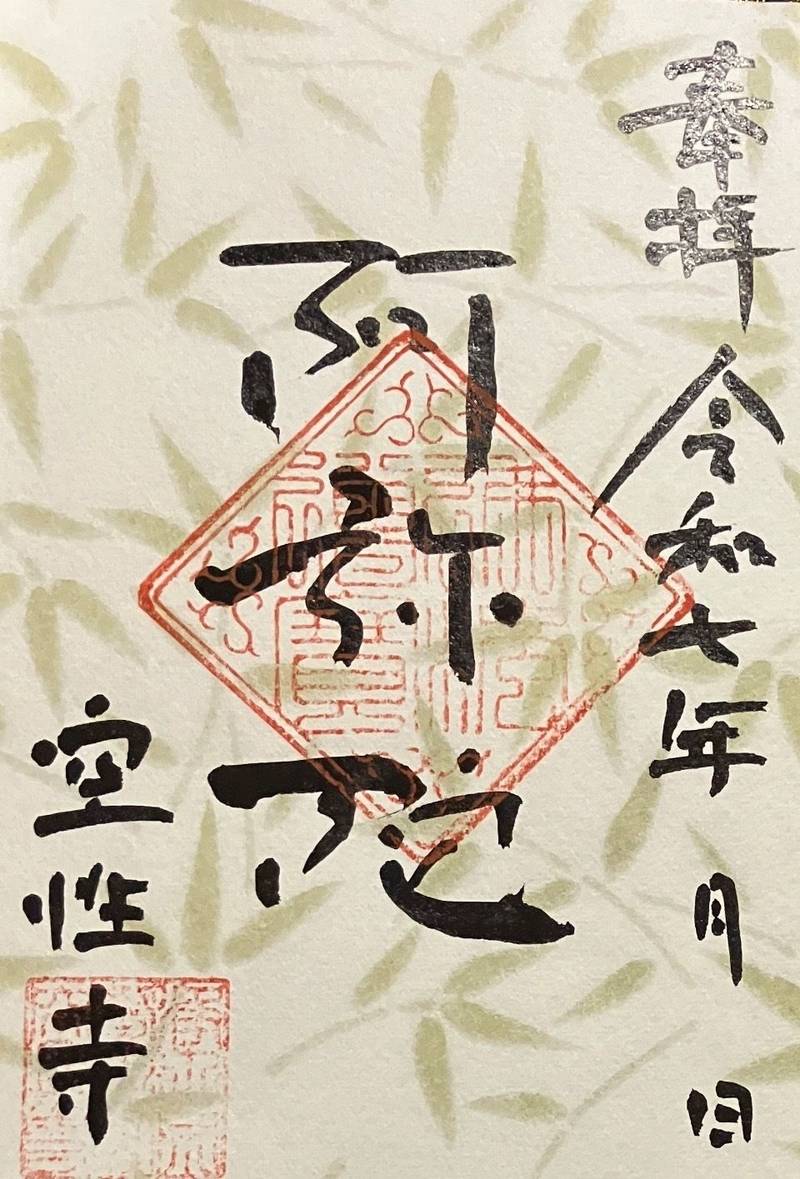 奉拝 令和七年 月 日
阿弥陀
空性寺